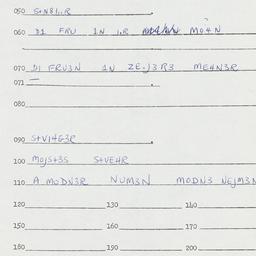 050
060 D1 FRU 1N MO4N
070 D1 FRU3N 1N ZE.J3R3 ME4N3R
071
080
090 S+V14G3R
100 MOJS+3S S+VE4R
110 A MODN3R NUM3N MODN3 NEJM3N
120 130 140
150 160 170
180 190 200